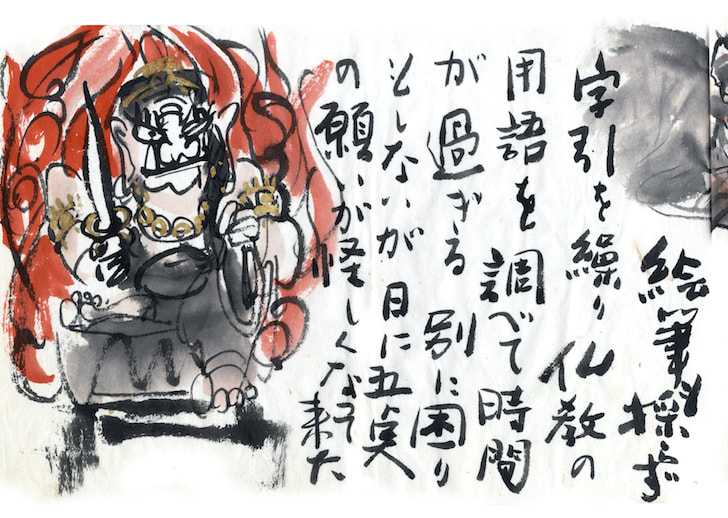 絵筆採らず
字引を繰り仏教の
用語を調べて時間
が過ぎる別に困り
もしないが日に五点
の願いが怪しくなって来た